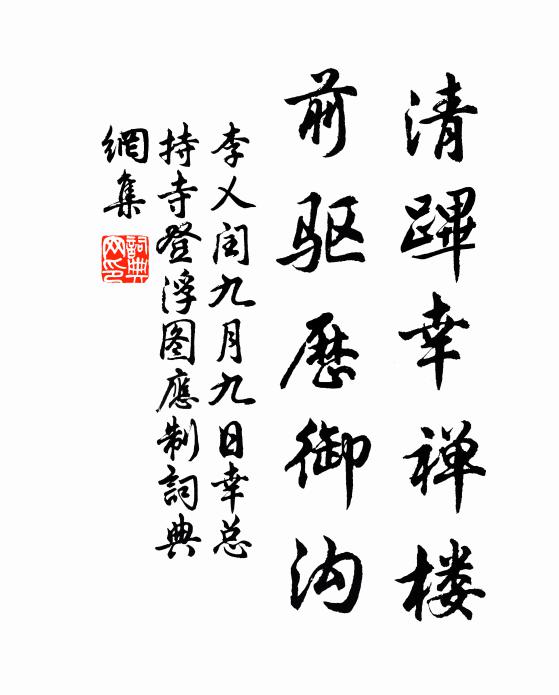 清蹕幸禅楼
前驱歷御沟
李乂闰九月九日幸总
持寺登浮图應制詞典
網集
詞典網印